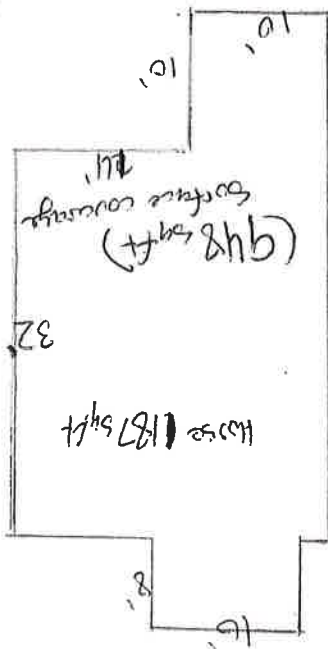 10'
8'
House 1187 sqft
32'
(948 sqft)
Surface coverage
14'
10'
10'